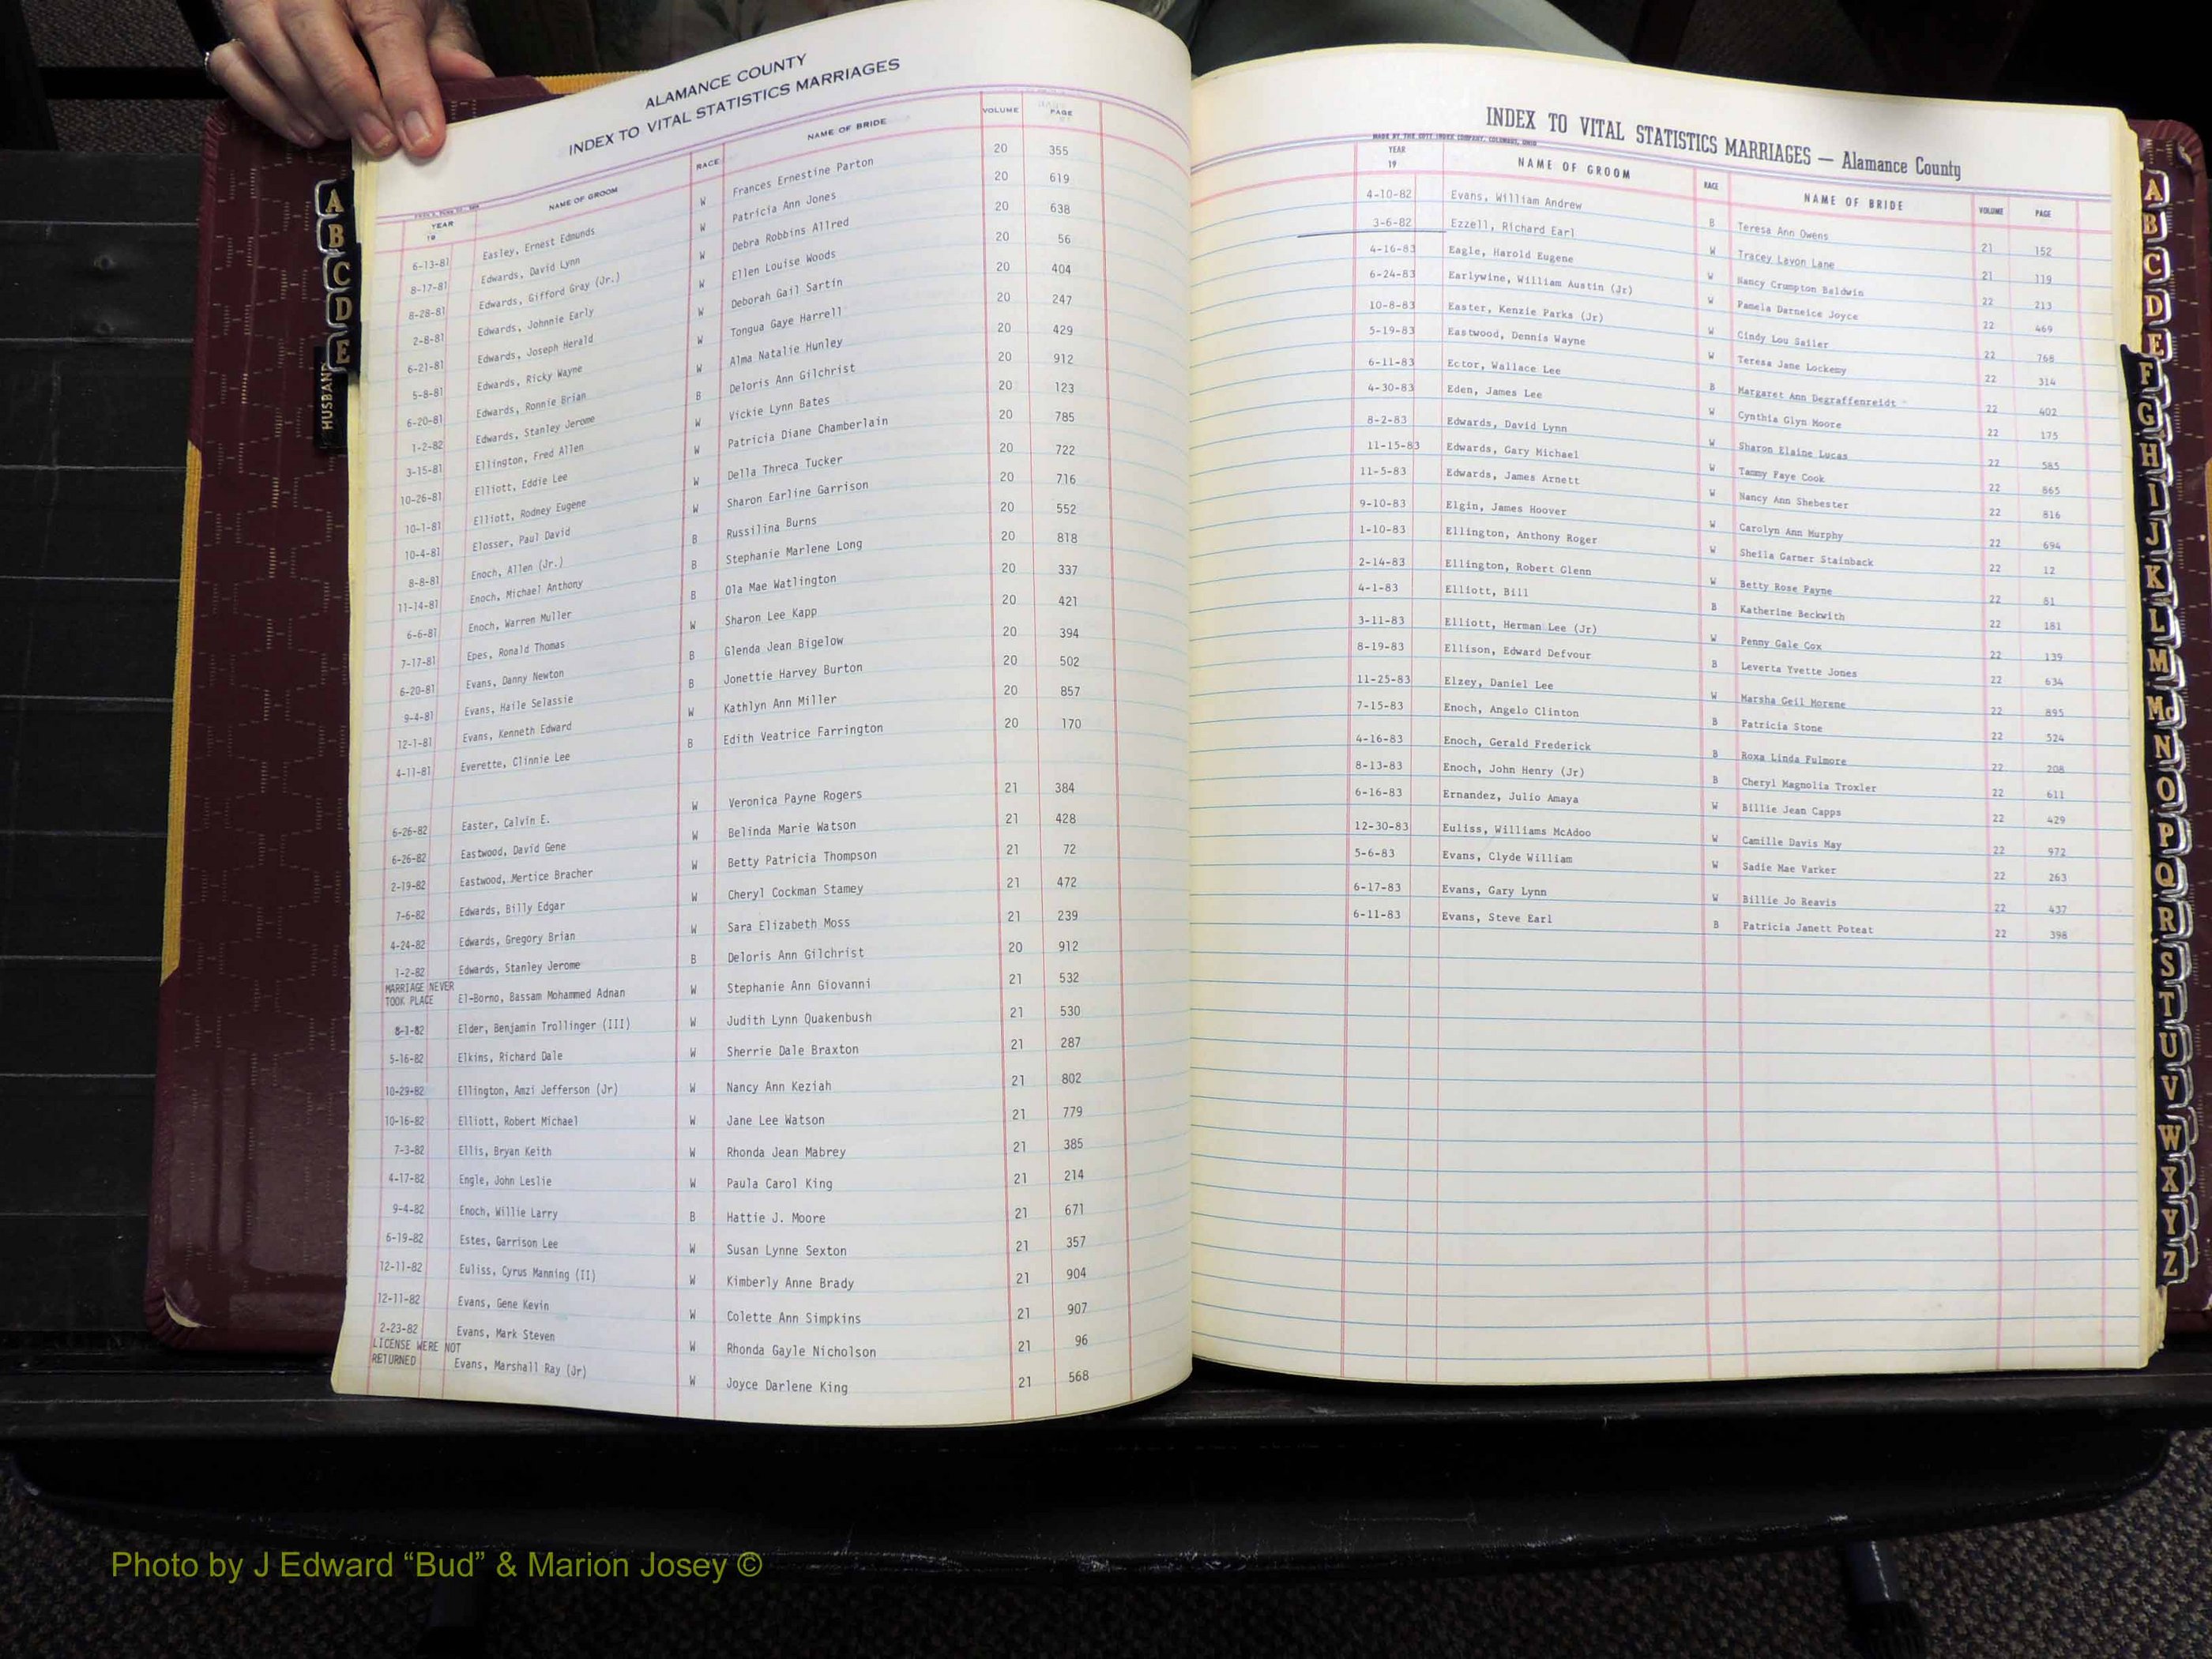 ALAMANCE COUNTY
INDEX TO VITAL STATISTICS MARRIAGES
YEAR 19 NAME OF GROOM RACE NAME OF BRIDE VOLUME PAGE
6-13-81 Easley, Ernest Edmunds W Frances Ernestine Parton 20 355
8-17-81 Edwards, David Lynn W Patricia Ann Jones 20 619
8-28-81 Edwards, Gifford Gray (Jr.) W Debra Robbins Allred 20 638
2-8-81 Edwards, Johnnie Early W Ellen Louise Woods 20 56
6-21-81 Edwards, Joseph Herald W Deborah Gail Sartin 20 404
5-8-81 Edwards, Ricky Wayne W Tongua Gaye Harrell 20 247
6-20-81 Edwards, Ronnie Brian W Alma Natalie Hunley 20 429
1-2-82 Edwards, Stanley Jerome B Deloris Ann Gilchrist 20 912
3-15-81 Ellington, Fred Allen W Vickie Lynn Bates 20 123
10-26-81 Elliott, Eddie Lee W Patricia Diane Chamberlain 20 785
10-1-81 Elliott, Rodney Eugene W Della Threca Tucker 20 722
10-4-81 Elosser, Paul David W Sharon Earline Garrison 20 716
8-8-81 Enoch, Allen (Jr.) B Russilina Burns 20 552
11-14-81 Enoch, Michael Anthony B Stephanie Marlene Long 20 818
6-6-81 Enoch, Warren Muller B Ola Mae Watlington 20 337
7-17-81 Epes, Ronald Thomas W Sharon Lee Kapp 20 421
6-20-81 Evans, Danny Newton B Glenda Jean Bigelow 20 394
9-4-81 Evans, Haile Selassie B Jonettie Harvey Burton 20 502
12-1-81 Evans, Kenneth Edward W Kathlyn Ann Miller 20 857
4-11-81 Everette, Clinnie Lee B Edith Veatrice Farrington 20 170
6-26-82 Easter, Calvin E. W Veronica Payne Rogers 21 384
6-26-82 Eastwood, David Gene W Belinda Marie Watson 21 428
2-19-82 Eastwood, Mertice Bracher W Betty Patricia Thompson 21 72
7-6-82 Edwards, Billy Edgar W Cheryl Cockman Stamey 21 472
4-24-82 Edwards, Gregory Brian W Sara Elizabeth Moss 21 239
1-2-82 Edwards, Stanley Jerome B Deloris Ann Gilchrist 20 912
MARRIAGE NEVER
TOOK PLACE El-Borno, Bassam Mohammed Adnan W Stephanie Ann Giovanni 21 532
8-1-82 Elder, Benjamin Trollinger (III) W Judith Lynn Quakenbush 21 530
5-16-82 Elkins, Richard Dale W Sherrie Dale Braxton 21 287
10-29-82 Ellington, Amzi Jefferson (Jr) W Nancy Ann Keziah 21 802
10-16-82 Elliott, Robert Michael W Jane Lee Watson 21 779
7-3-82 Ellis, Bryan Keith W Rhonda Jean Mabrey 21 385
4-17-82 Engle, John Leslie W Paula Carol King 21 214
9-4-82 Enoch, Willie Larry B Hattie J. Moore 21 671
6-19-82 Estes, Garrison Lee W Susan Lynne Sexton 21 357
12-11-82 Euliss, Cyrus Manning (II) W Kimberly Anne Brady 21 904
12-11-82 Evans, Gene Kevin W Colette Ann Simpkins 21 907
2-23-82 Evans, Mark Steven W Rhonda Gayle Nicholson 21 96
LICENSE WERE NOT
RETURNED Evans, Marshall Ray (Jr) W Joyce Darlene King 21 568
A
B
C
D
E
HUSBAND
INDEX TO VITAL STATISTICS MARRIAGES — Alamance County
MADE BY THE COTT INDEX COMPANY, COLUMBUS, OHIO
YEAR 19 NAME OF GROOM RACE NAME OF BRIDE VOLUME PAGE
4-10-82 Evans, William Andrew B Teresa Ann Owens 21 152
3-6-82 Ezzell, Richard Earl W Tracey Lavon Lane 21 119
4-16-83 Eagle, Harold Eugene W Nancy Crumpton Baldwin 22 213
6-24-83 Earlywine, William Austin (Jr) W Pamela Darneice Joyce 22 469
10-8-83 Easter, Kenzie Parks (Jr) W Cindy Lou Sailer 22 768
5-19-83 Eastwood, Dennis Wayne W Teresa Jane Lockemy 22 314
6-11-83 Ector, Wallace Lee B Margaret Ann Degraffenreidt 22 402
4-30-83 Eden, James Lee W Cynthia Glyn Moore 22 175
8-2-83 Edwards, David Lynn W Sharon Elaine Lucas 22 585
11-15-83 Edwards, Gary Michael W Tammy Faye Cook 22 865
11-5-83 Edwards, James Arnett W Nancy Ann Shebester 22 816
9-10-83 Elgin, James Hoover W Carolyn Ann Murphy 22 694
1-10-83 Ellington, Anthony Roger W Sheila Garner Stainback 22 12
2-14-83 Ellington, Robert Glenn W Betty Rose Payne 22 81
4-1-83 Elliott, Bill B Katherine Beckwith 22 181
3-11-83 Elliott, Herman Lee (Jr) W Penny Gale Cox 22 139
8-19-83 Ellison, Edward Defvour B Leverta Yvette Jones 22 634
11-25-83 Elzey, Daniel Lee W Marsha Geil Morene 22 895
7-15-83 Enoch, Angelo Clinton B Patricia Stone 22 524
4-16-83 Enoch, Gerald Frederick B Roxa Linda Fulmore 22 208
8-13-83 Enoch, John Henry (Jr) B Cheryl Magnolia Troxler 22 611
6-16-83 Ernandez, Julio Amaya W Billie Jean Capps 22 429
12-30-83 Euliss, Williams McAdoo W Camille Davis May 22 972
5-6-83 Evans, Clyde William W Sadie Mae Varker 22 263
6-17-83 Evans, Gary Lynn W Billie Jo Reavis 22 437
6-11-83 Evans, Steve Earl B Patricia Janett Poteat 22 398
A
B
C
D
E
F
G
H
I
J
K
L
M
Mc
N
O
P
Q
R
S
T
U
V
W
X
Y
Z
Photo by J Edward “Bud” & Marion Josey ©